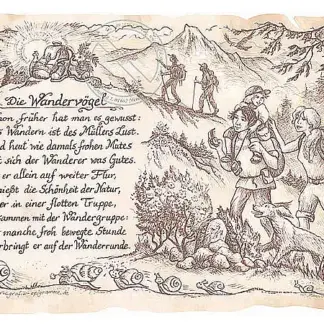 Die Wandervögel
on früher hat man es gewusst:
s Wandern ist des Müllers Lust.
d heut wie damals frohen Mutes
t sich der Wanderer was Gutes.
er allein auf weiter Flur,
ießt die Schönheit der Natur,
er in einer flotten Truppe,
sammen mit der Wandergruppe:
manche froh bewegte Stunde
rbringt er auf der Wanderrunde.